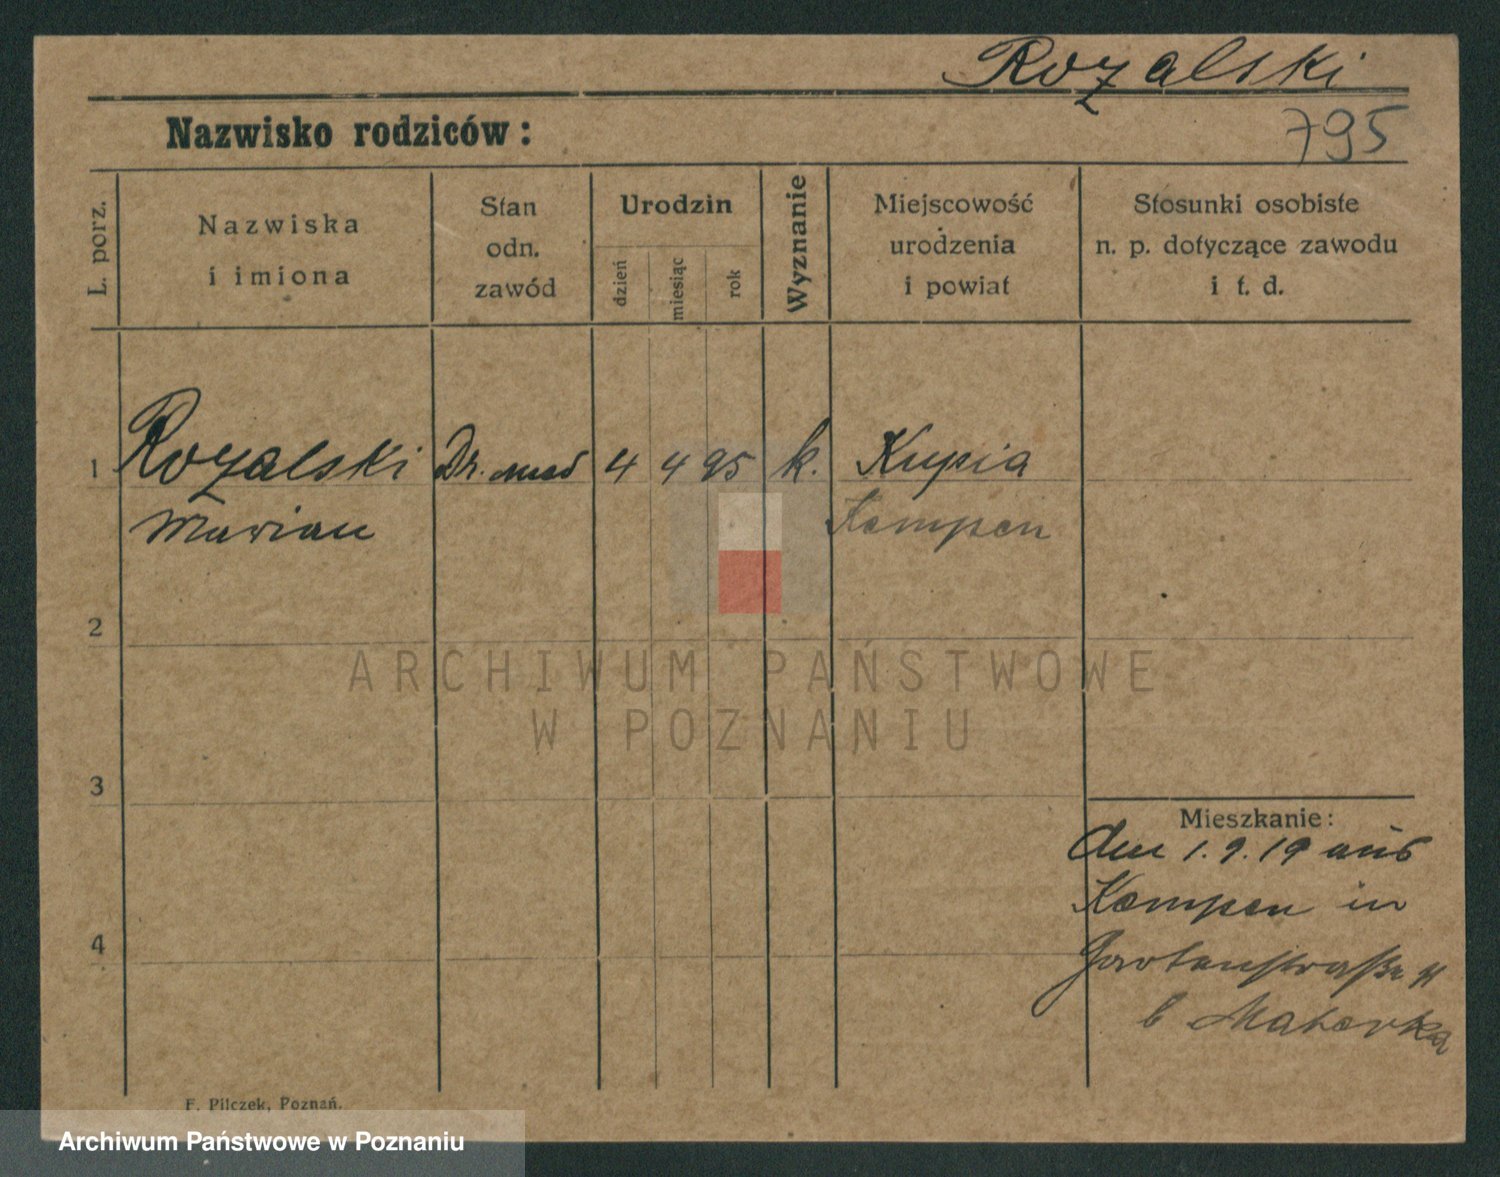 Rozalski
Nazwisko rodziców:
795
L. porz.
Nazwiska
i imiona
Stan
odn.
zawód
Urodzin
dzień
miesiąc
rok
Wyznanie
Miejscowość
urodzenia
i powiat
Stosunki osobiste
n. p. dotyczące zawodu
i t. d.
1 Rozalski Dr. med 4 4 95 k. Kupia
Marian Kempen
2
ARCHIWUM PAŃSTWOWE
W POZNANIU
3
Mieszkanie:
den 1.9.19 aus
Kempen in
4
Gartenstraße
b
F. Pilczek, Poznań.
Archiwum Państwowe w Poznaniu